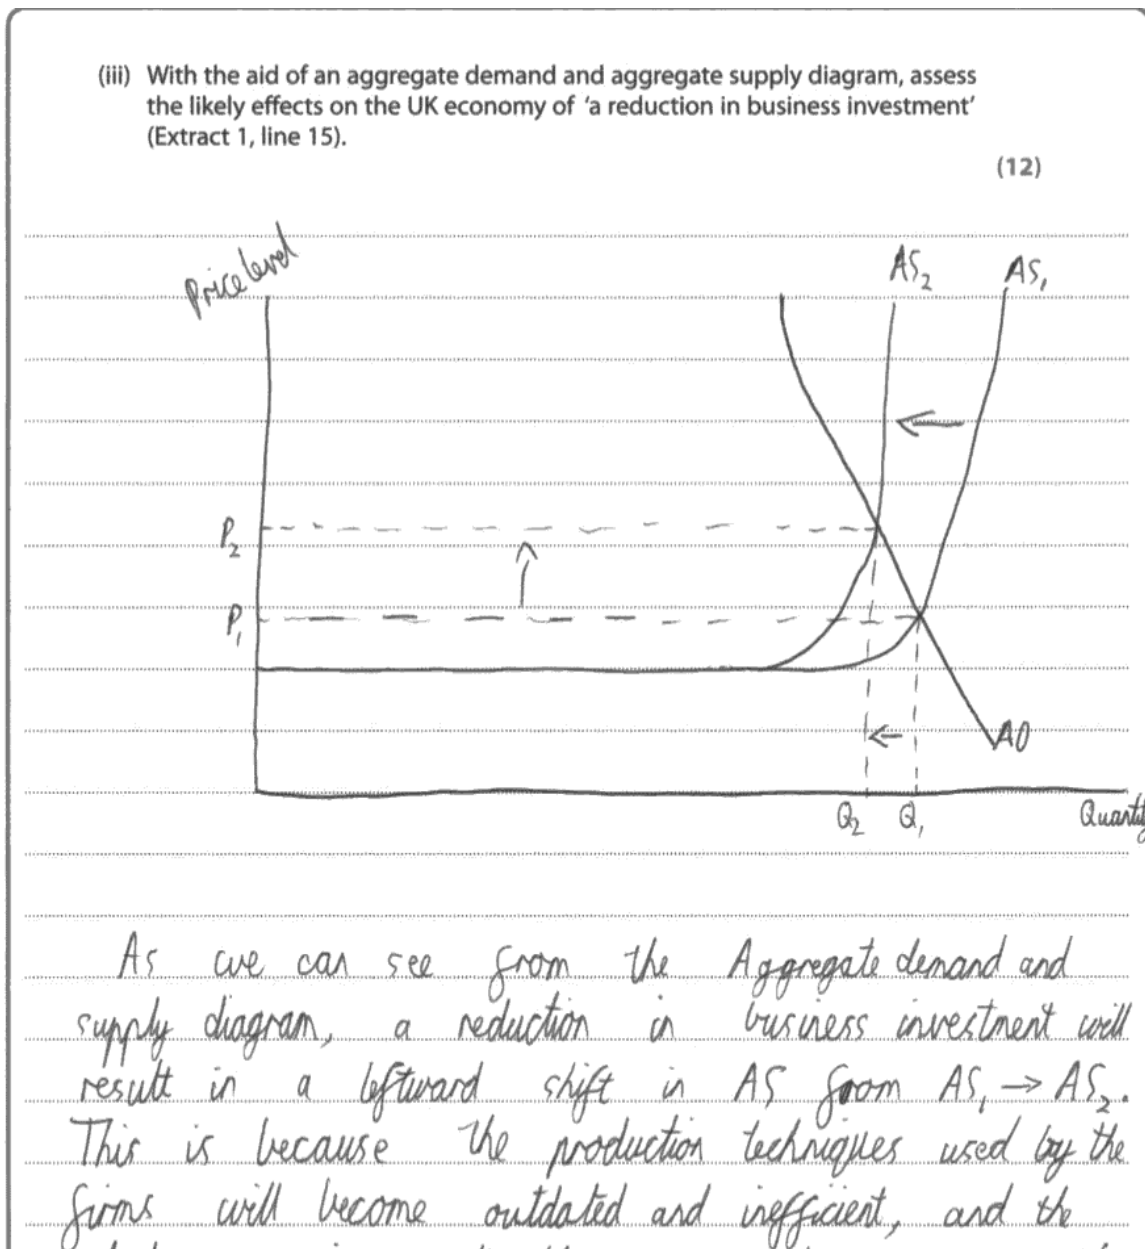 (iii) With the aid of an aggregate demand and aggregate supply diagram, assess
the likely effects on the UK economy of 'a reduction in business investment'
(Extract 1, line 15).
(12)
Price level
AS₂
AS₁
P₂
P₁
AD
Q₂
Q₁
Quantity
As we can see from the Aggregate demand and
supply diagram, a reduction in business investment will
result in a leftward shift in AS from AS₁ → AS₂.
This is because the production techniques used by the
firms will become outdated and inefficient, and the